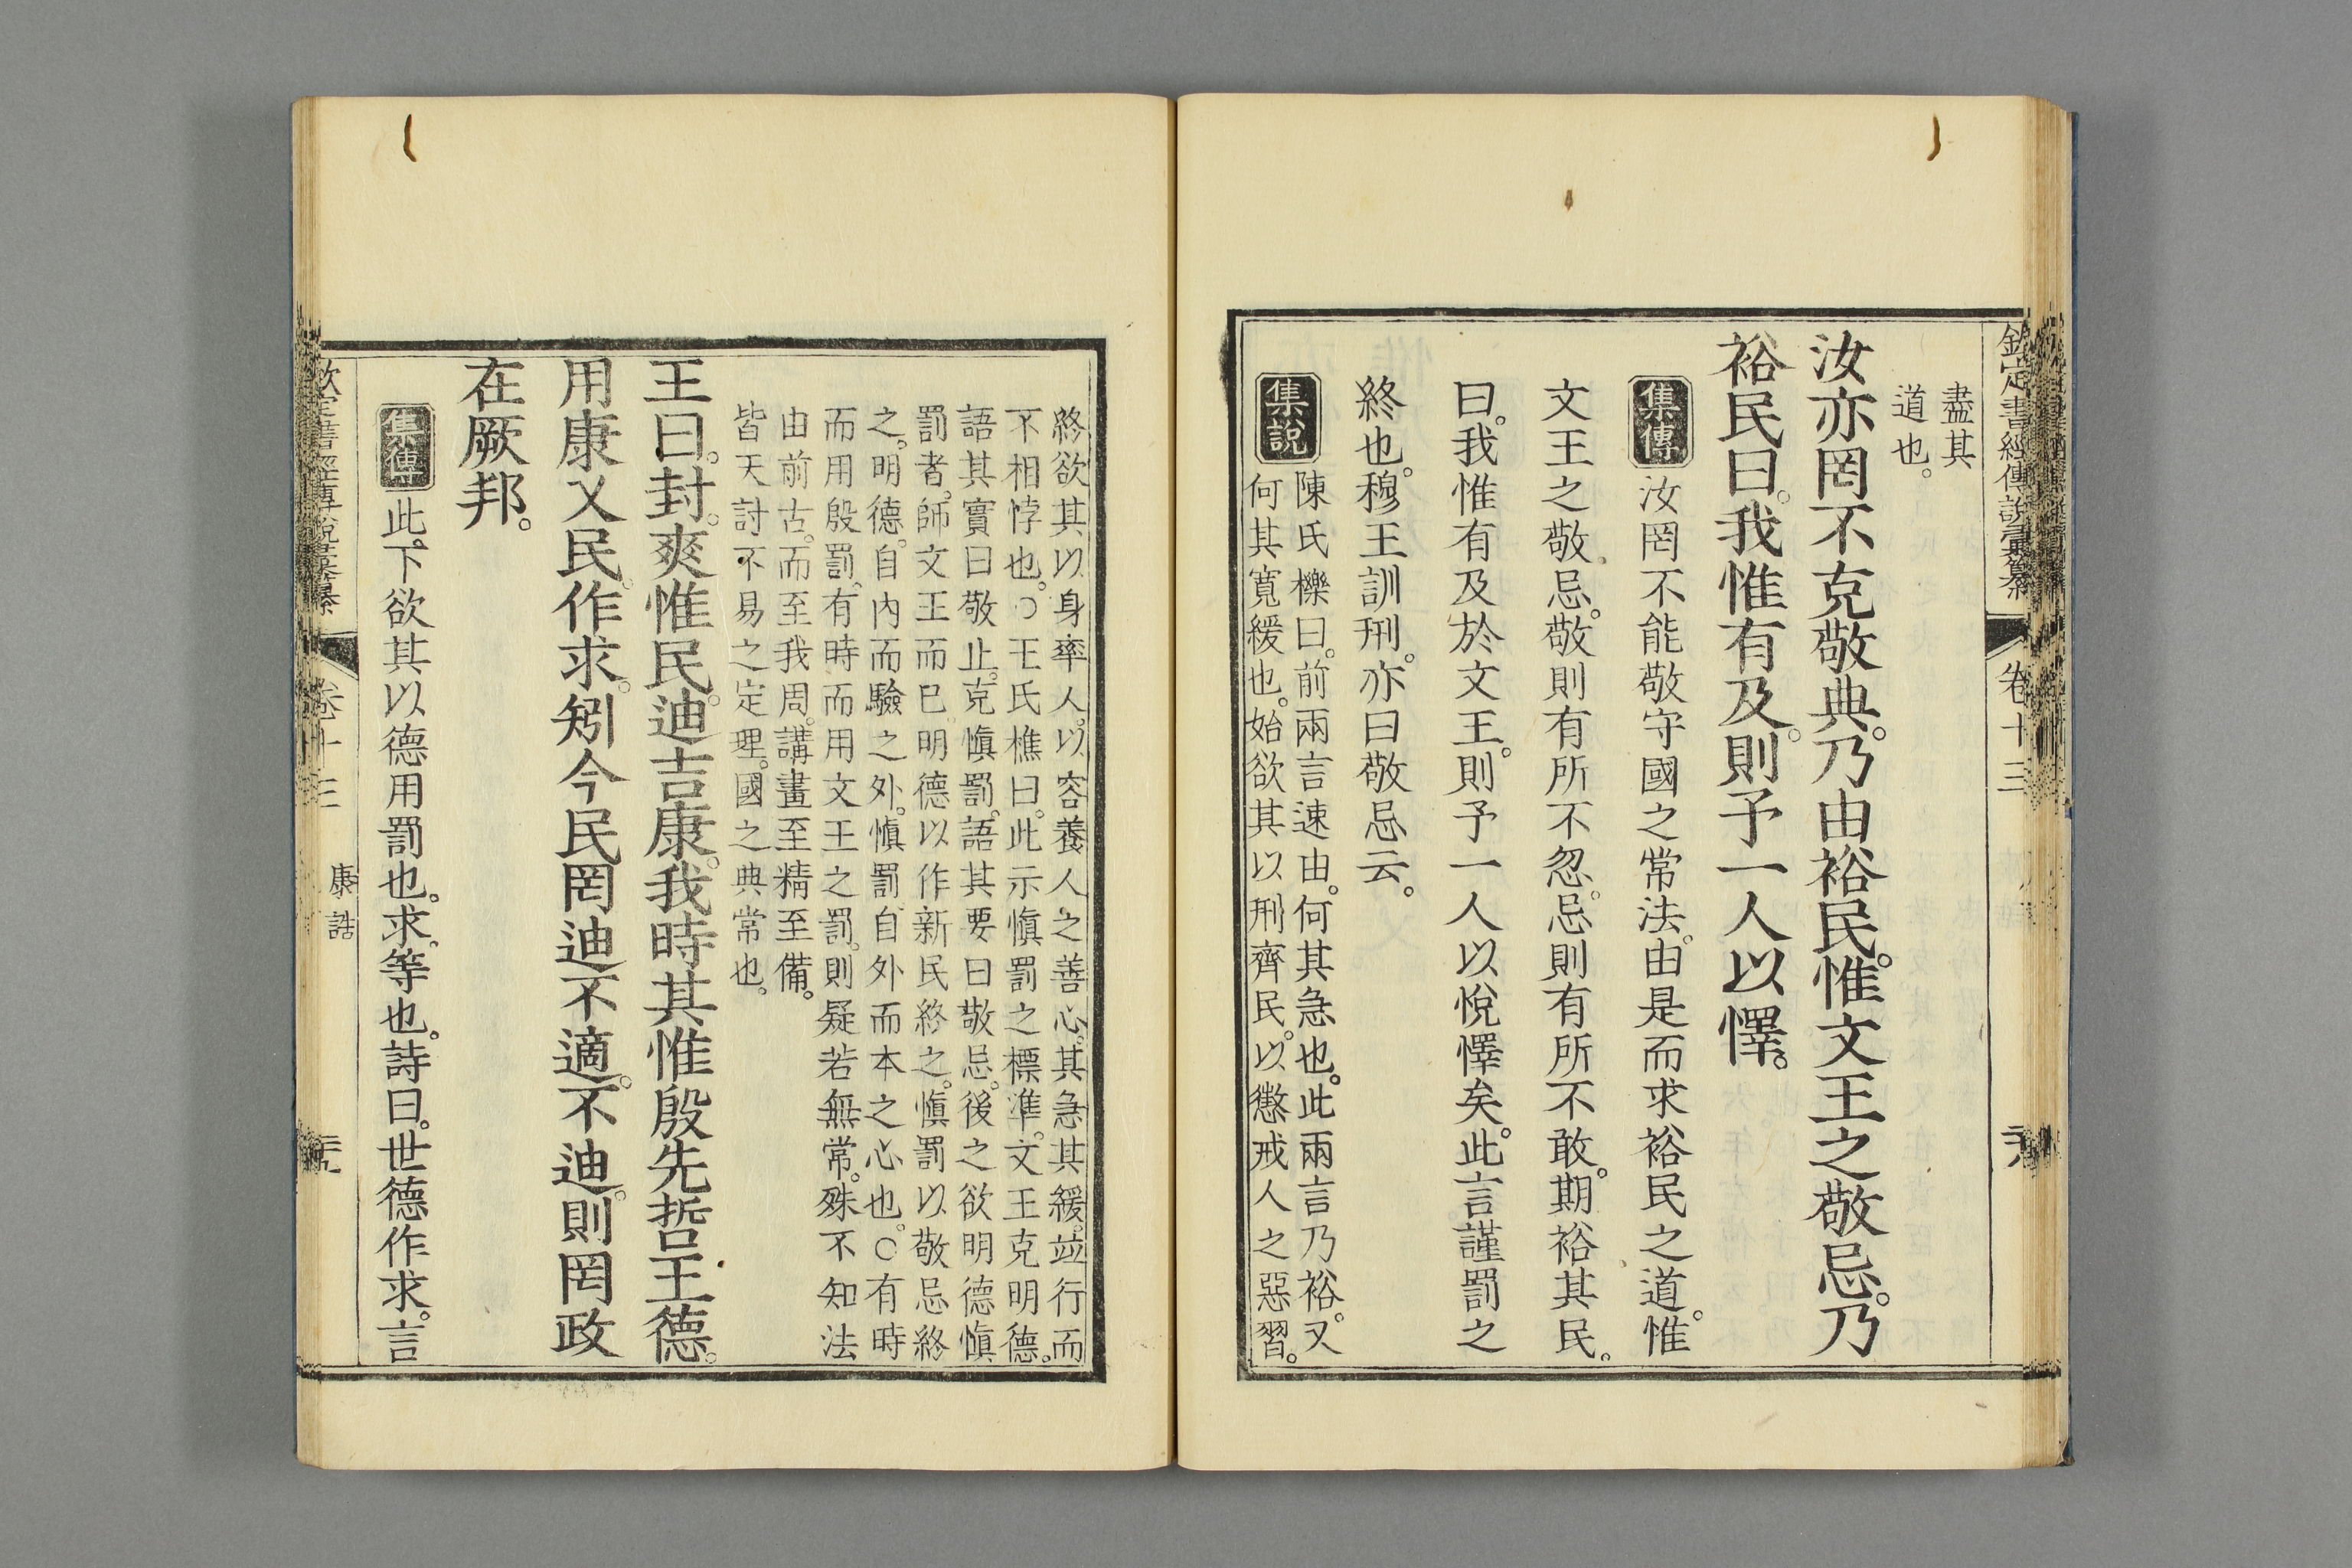 欽定書經傳說彙纂
卷十三
盡其
道也。
汝亦罔不克敬典。乃由裕民。惟文王之敬忌。乃
裕民曰。我惟有及。則予一人以懌。
集傳
汝罔不能敬守國之常法。由是而求裕民之道。惟
文王之敬忌。敬則有所不忽。忌則有所不敢。期裕其民。
曰。我惟有及於文王。則予一人以悅懌矣。此言謹罰之
終也。穆王訓刑。亦曰敬忌云。
集說
陳氏櫟曰。前兩言速由。何其急也。此兩言乃裕。又
何其寬緩也。始欲其以刑齊民。以懲戒人之惡習。
終欲其以身率人。以容養人之善心。其急其緩。竝行而
不相悖也。○王氏樵曰。此示愼罰之標準。文王克明德。
語其實曰敬止。克愼罰。語其要曰敬忌。後之欲明德愼
罰者。師文王而已。明德以作新民終之。愼罰以敬忌終
之。明德。自內而驗之外。愼罰。自外而本之心也。○有時
而用殷罰。有時而用文王之罰。則疑若無常。殊不知法
由前古。而至我周。講畫至精至備。
皆天討不易之定理。國之典常也。
王曰。封。爽惟民。迪吉康。我時其惟殷先哲王德。
用康乂民。作求。矧今民罔迪不適。不迪。則罔政
在厥邦。
集傳
此。下欲其以德用罰也。求。等也。詩曰。世德作求。言
欽定書經傳說彙纂
卷十三
康誥